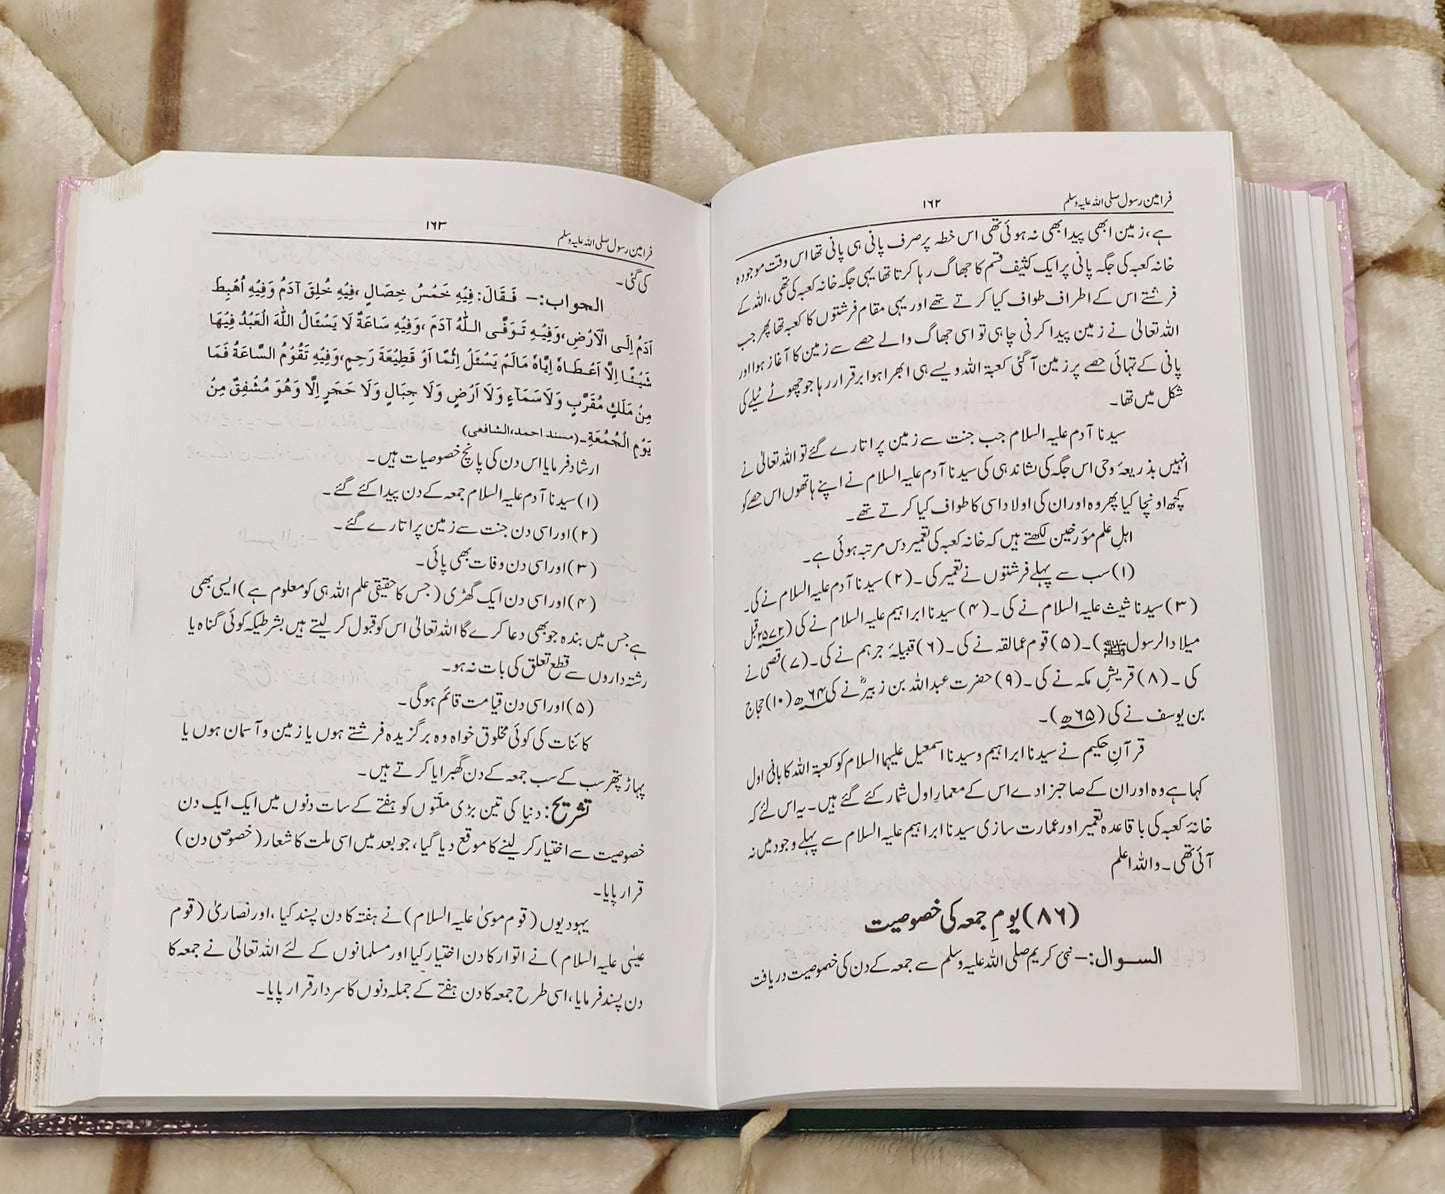 فرامین رسول صلی اللہ علیہ وسلم ۱۶۲
ہے، زمین ابھی پیدا بھی نہ ہوئی تھی اس خطہ پر صرف پانی ہی پانی تھا اس وقت موجودہ
خانہ کعبہ کی جگہ پانی پر ایک کثیف قسم کا جھاگ رہا کرتا تھا یہی جگہ خانہ کعبہ کی تھی، اللہ کے
فرشتے اس کے اطراف طواف کیا کرتے تھے اور یہی مقام فرشتوں کا کعبہ تھا پھر جب
اللہ تعالیٰ نے زمین پیدا کرنی چاہی تو اسی جھاگ والے حصے سے زمین کا آغاز ہوا اور
پانی کے تہائی حصے پر زمین آ گئی کعبۃ اللہ ویسے ہی ابھرا ہوا برقرار رہا جو چھوٹے ٹیلے کی
شکل میں تھا۔
سیدنا آدم علیہ السلام جب جنت سے زمین پر اتارے گئے تو اللہ تعالیٰ نے
انہیں بذریعۂ وحی اس جگہ کی نشاندہی کی سیدنا آدم علیہ السلام نے اپنے ہاتھوں اس حصے کو
کچھ اونچا کیا پھر وہ اور ان کی اولاد اسی کا طواف کیا کرتے تھے۔
اہلِ علم مؤرخین لکھتے ہیں کہ خانہ کعبہ کی تعمیر دس مرتبہ ہوئی ہے۔
(۱) سب سے پہلے فرشتوں نے تعمیر کی۔ (۲) سیدنا آدم علیہ السلام نے کی۔
(۳) سیدنا شیث علیہ السلام نے کی۔ (۴) سیدنا ابراہیم علیہ السلام نے کی (۲۵۷۲ قبل
میلاد الرسول ﷺ)۔ (۵) قوم عمالقہ نے کی۔ (۶) قبیلۂ جرہم نے کی۔ (۷) قصی نے
کی۔ (۸) قریشِ مکہ نے کی۔ (۹) حضرت عبد اللہ بن زبیرؓ نے کی ۶۴ھ (۱۰) حجاج
بن یوسف نے کی (۶۵ھ)۔
قرآنِ حکیم نے سیدنا ابراہیم و سیدنا اسمعیل علیہما السلام کو کعبۃ اللہ کا بانی اول
کہا ہے وہ اور ان کے صاحبزادے اس کے معمارِ اول شمار کئے گئے ہیں۔ یہ اس لئے کہ
خانۂ کعبہ کی باقاعدہ تعمیر اور عمارت سازی سیدنا ابراہیم علیہ السلام سے پہلے وجود میں نہ
آئی تھی۔ واللہ اعلم
(۸۶) یومِ جمعہ کی خصوصیت
السوال:– نبیٔ کریم صلی اللہ علیہ وسلم سے جمعہ کے دن کی خصوصیت دریافت
فرامین رسول صلی اللہ علیہ وسلم ۱۶۳
کی گئی۔
الجواب:– فَقَالَ: فِيْهِ خَمْسُ خِصَالٍ ،فِيْهِ خُلِقَ آدَمُ وَفِيْهِ اُهْبِطَ
آدَمُ اِلَى الْاَرْضِ،وَفِيْهِ تَوَفَّى اللّٰهُ آدَمَ ،وَفِيْهِ سَاعَةٌ لَا يَسْئَالُ اللّٰهَ الْعَبْدُ فِيْهَا
شَيْئًا اِلَّا اَعْطَاهُ اِيَّاهُ مَالَمْ يَسْئَلْ اِثْمًا اَوْ قَطِيْعَةَ رَحِمٍ،وَفِيْهِ تَقُوْمُ السَّاعَةُ فَمَا
مِنْ مَلَكٍ مُقَرَّبٍ وَلَاسَمَآءٍ وَلَا اَرْضٍ وَلَا جِبَالٍ وَلَا حَجَرٍ اِلَّا وَهُوَ مُشْفِقٌ مِنْ
يَوْمِ الْجُمُعَةِ۔ (مسند احمد،الشافعی)
ارشاد فرمایا اس دن کی پانچ خصوصیات ہیں۔
(۱) سیدنا آدم علیہ السلام جمعہ کے دن پیدا کئے گئے۔
(۲) اور اسی دن جنت سے زمین پر اتارے گئے۔
(۳) اور اسی دن وفات بھی پائی۔
(۴) اور اسی دن ایک گھڑی (جس کا حقیقی علم اللہ ہی کو معلوم ہے) ایسی بھی
ہے جس میں بندہ جو بھی دعا کرے گا اللہ تعالیٰ اس کو قبول کر لیتے ہیں بشرطیکہ کوئی گناہ یا
رشتہ داروں سے قطع تعلق کی بات نہ ہو۔
(۵) اور اسی دن قیامت قائم ہوگی۔
کائنات کی کوئی مخلوق خواہ وہ برگزیدہ فرشتے ہوں یا زمین و آسمان ہوں یا
پہاڑ پتھر سب کے سب جمعہ کے دن گھبرایا کرتے ہیں۔
تشریح: دنیا کی تین بڑی ملّتوں کو ہفتے کے سات دنوں میں ایک ایک دن
خصوصیت سے اختیار کر لینے کا موقع دیا گیا، جو بعد میں اسی ملت کا شعار (خصوصی دن)
قرار پایا۔
یہودیوں (قوم موسیٰ علیہ السلام) نے ہفتہ کا دن پسند کیا، اور نصاریٰ (قوم
عیسٰی علیہ السلام) نے اتوار کا دن اختیار کیا اور مسلمانوں کے لئے اللہ تعالیٰ نے جمعہ کا
دن پسند فرمایا، اسی طرح جمعہ کا دن ہفتے کے جملہ دنوں کا سردار قرار پایا۔